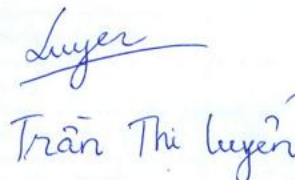 Luyen
Trần Thi luyến